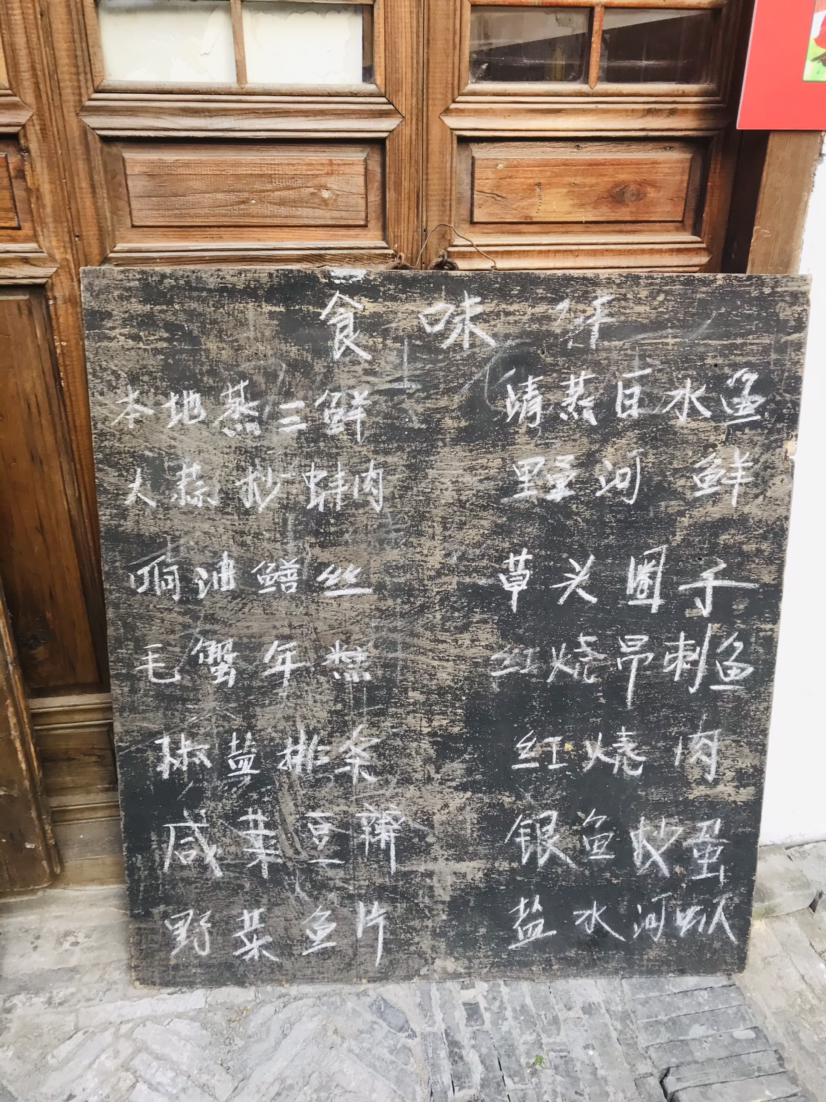 食味轩
本地蒸三鲜
清蒸白水鱼
大蒜炒蚌肉
野河鲜
响油鳝丝
草头圈子
毛蟹年糕
红烧昂刺鱼
椒盐排条
红烧肉
咸菜豆瓣
银鱼炒蛋
野菜鱼片
盐水河虾